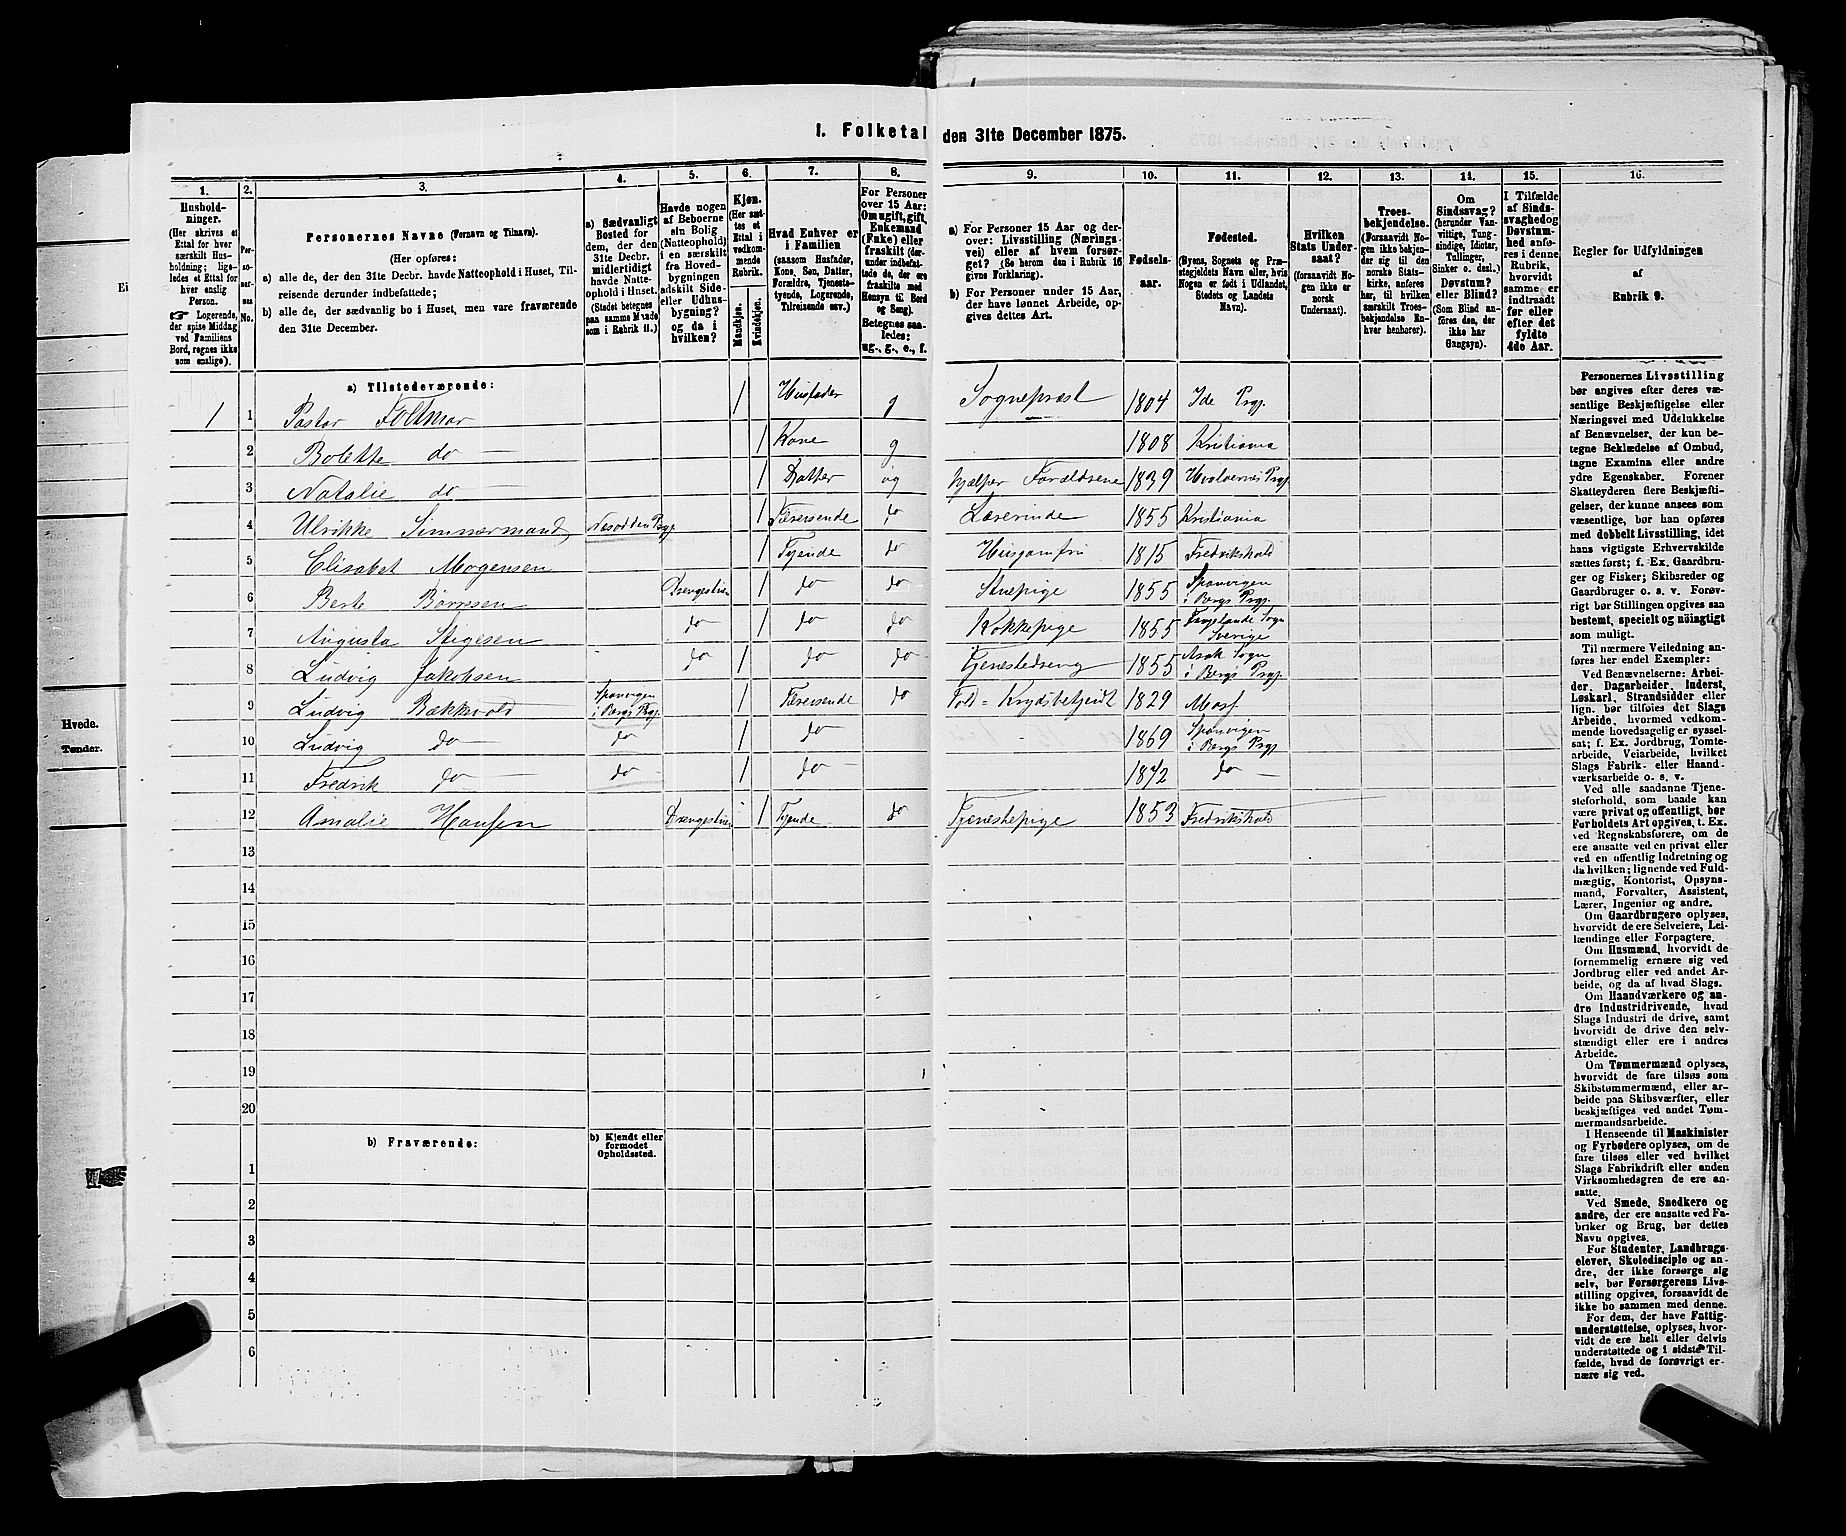 I. Folketal den 31te December 1875.
1. 2. 3. 4. 5. 6. 7. 8. 9. 10. 11. 12. 13. 14. 15. 16.
Husholdninger. (Her skrives et Ettal for hver særskilt Husholdning; ligeledes et Ettal for hver enslig Person. Logerende, der spise Middag ved Familiens Bord, regnes ikke som enslige).
Personernes No.
Personernes Navne (Fornavn og Tilnavn).
(Her opføres:
a) alle de, der den 31te Decbr. havde Natteophold i Huset, Tilreisende derunder indbefattede;
b) alle de, der sædvanlig bo i Huset, men vare fraværende den 31te December.
a) Sædvanligt Bosted for dem, der den 31te Decbr. midlertidigt havde Natteophold i Huset. (Stedet betegnes paa samme Maade som i Rubrik 11.).
Havde nogen af Beboerne sin Bolig (Natteophold) i en særskilt fra Hovedbygningen adskilt Side- eller Udhusbygning? og da i hvilken?
Kjøn. (Her sættes et Ettal i vedkommende Rubrik.
Mandkjøn. Kvindekjøn.
Hvad Enhver er i Familien (saasom Husfader, Kone, Søn, Datter, Forældre, Tjenestetyende, Logerende, Tilreisende osv.)
For Personer over 15 Aar: Om ugift, gift, Enkemand (Enke) eller fraskilt (derunder indbefattede de, der ere fraskilte med Hensyn til Bord og Seng). Betegnes saaledes: ug., g., e., f.
a) For Personer 15 Aar og derover: Livsstilling (Næringsvei) eller af hvem forsørget? (Se herom den i Rubrik 16 givne Forklaring).
b) For Personer under 15 Aar, der have lønnet Arbeide, opgives dettes Art.
Fødselsaar.
Fødested. (Byens, Sognets og Præstegjeldets Navn eller, hvis Nogen er født i Udlandet, Stedets og Landets Navn).
Hvilken Stats Undersaat? (forsaavidt Nogen ikke er norsk Undersaat).
Troesbekjendelse. (Forsaavidt Nogen ikke bekjender sig til den norske Statskirke, anføres her, til hvilken særskilt Troesbekjendelse Enhver henhører).
Om Sindssvag? (herunder Vanvittige, Tungsindige, Idioter, Tullinger, Sinker o. desl.) Døvstum? eller Blind? (Som Blind anføres den, der ikke har Gangsyn).
I Tilfælde af Sindssvaghed og Døvstumhed anføres i denne Rubrik, hvorvidt samme er indtraadt før eller efter det fyldte 4de Aar.
Regler for Udfyldningen af Rubrik 9.
a) Tilstedeværende:
1 1 Pastor Foltmar 1 Husfader g Sognepræst 1804 Ide Prgj.
2 Bolette do — 1 Kone g 1808 Kristiania
3 Natalie do — 1 Datter ug hjælper Forældrene 1839 Hvaløernes Prgj.
4 Ulrikke Simmermand Næsodden Prgj. 1 Tilreisende do Lærerinde 1855 Kristiania
5 Elisabet Mogensen 1 Tyende do Husjomfru 1815 Fredrikshald
6 Berte Børresen Drengestuen 1 do do Stuepige 1855 Sponvigen i Bergs Prgj.
7 Augusta Stigesen do 1 do do Kokkepige 1855 Sogn Sverige
8 Ludvig Jakobsen do 1 do do Tjenestedreng 1855 Asak Sogn i Bergs Prgj.
9 Ludvig Bækkvold Sponvigen i Bergs Prgj. 1 Tilreisende do Told = Krydsbetjendt 1829 Moss
10 Ludvig do do 1 do 1869 Sponvigen i Bergs Prgj
11 Fredrik do — do 1 do — 1872 do —
12 Amalie Hansen Drengestuen 1 Tyende do Tjenestepige 1853 Fredrikshald
13
14
15
16
17
18
19
20
b) Fraværende:
b) Kjendt eller formodet Opholdssted.
1
2
3
4
5
6
Personernes Livsstilling
bør angives efter deres væ-
sentlige Beskjæftigelse eller
Næringsvei med Udelukkelse
af Benævnelser, der kun be-
tegne Beklædelse af Ombud,
tagne Examina eller andre
ydre Egenskaber. Forener
Skatteyderen flere Beskjæfti-
gelser, der kunne ansees som
væsentlige, bør han opføres
med dobbelt Livsstilling, idet
hans vigtigste Erhvervskilde
sættes først; f. Ex. Gaardbru-
ger og Fisker; Skibsreder og
Gaardbruger o. s. v. Forøv-
rigt bør Stillingen opgives saa
bestemt, specielt og nöiagtigt
som muligt.
Til nærmere Veiledning an-
føres her endel Exempler:
Ved Benævnelserne: Arbei-
der, Dagarbeider, Inderst,
Løskarl, Strandsidder eller
lign. bør tilføies det Slags
Arbeide, hvormed vedkom-
mende hovedsagelig er syssel-
sat; f. Ex. Jordbrug, Tomte-
arbeide, Veiarbeide, hvilket
Slags Fabrik- eller Haand-
værksarbeide o. s. v.
Ved alle saadanne Tjene-
steforhold, som baade kan
være privat og offentligt, bør
Forholdets Art opgives, t. Ex.
ved Regnskabsførere, om de
ere ansatte ved en privat eller
ved en offentlig Indretning og
da hvilken; lignende ved Fuld-
mægtig, Kontorist, Opsyns-
mand, Forvalter, Assistent,
Lærer, Ingeniør og andre.
Om Gaardbrugere oplyses,
hvorvidt de ere Selveiere, Lei-
lændinge eller Forpagtere.
Om Husmænd, hvorvidt de
fornemmelig ernære sig ved
Jordbrug eller ved andet Ar-
beide, og da af hvad Slags.
Om Haandværkere og an-
dre Industridrivende, hvad
Slags Industri de drive, samt
hvorvidt de drive den selv-
stændigt eller ere i andres
Arbeide.
Om Tømmermænd oplyses,
hvorvidt de fare tilsøs som
Skibstømmermænd, eller ar-
beide paa Skibsværfter, eller
beskjæftiges ved andet Tøm-
mermandsarbeide.
I Henseende til Maskinister
og Fyrbødere oplyses, om de
fare tilsøs eller ved hvilket
Slags Fabrikdrift eller anden
Virksomhedsgren de ere an-
satte.
Ved Smede, Snedkere og
andre, der ere ansatte ved Fa-
briker og Brug, bør dettes
Navn opgives.
For Studenter, Landbrugs-
elever, Skoledisciple og an-
dre, der ikke forsørge sig
selv, bør Forsørgerens Livs-
stilling opgives, forsaavidt de
ikke bo sammen med denne.
For dem, der have Fattig-
understøttelse, oplyses, hvor-
vidt de ere helt eller delvis
understøttede og i sidste Til-
fælde, hvad de forøvrigt er-
nære sig ved.
Hvede.
Tønder.